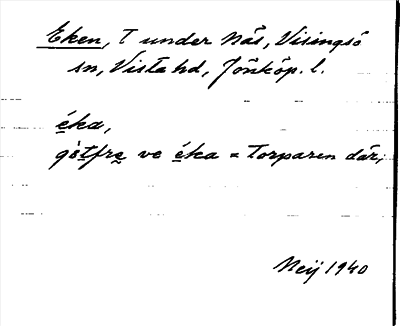 Eken, T under Näs, Visingsö
sn, Vista hd, Jönköp. l.
éka,
gòtfrę ve éka = Torparen där,
Neij 1940